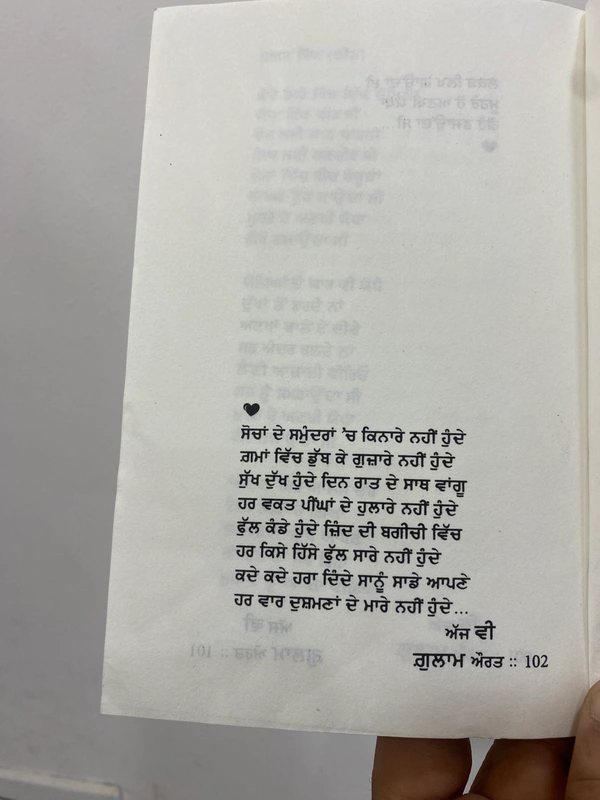 ਸੋਚਾਂ ਦੇ ਸਮੁੰਦਰਾਂ 'ਚ ਕਿਨਾਰੇ ਨਹੀਂ ਹੁੰਦੇ
ਗ਼ਮਾਂ ਵਿੱਚ ਡੁੱਬ ਕੇ ਗੁਜ਼ਾਰੇ ਨਹੀਂ ਹੁੰਦੇ
ਸੁੱਖ ਦੁੱਖ ਹੁੰਦੇ ਦਿਨ ਰਾਤ ਦੇ ਸਾਥ ਵਾਂਗੂ
ਹਰ ਵਕਤ ਪੀਂਘਾਂ ਦੇ ਹੁਲਾਰੇ ਨਹੀਂ ਹੁੰਦੇ
ਫੁੱਲ ਕੰਡੇ ਹੁੰਦੇ ਜ਼ਿੰਦ ਦੀ ਬਗੀਚੀ ਵਿੱਚ
ਹਰ ਕਿਸੇ ਹਿੱਸੇ ਫੁੱਲ ਸਾਰੇ ਨਹੀਂ ਹੁੰਦੇ
ਕਦੇ ਕਦੇ ਹਰਾ ਦਿੰਦੇ ਸਾਨੂੰ ਸਾਡੇ ਆਪਣੇ
ਹਰ ਵਾਰ ਦੁਸ਼ਮਣਾਂ ਦੇ ਮਾਰੇ ਨਹੀਂ ਹੁੰਦੇ...
ਅੱਜ ਵੀ
ਗ਼ੁਲਾਮ ਔਰਤ :: 102